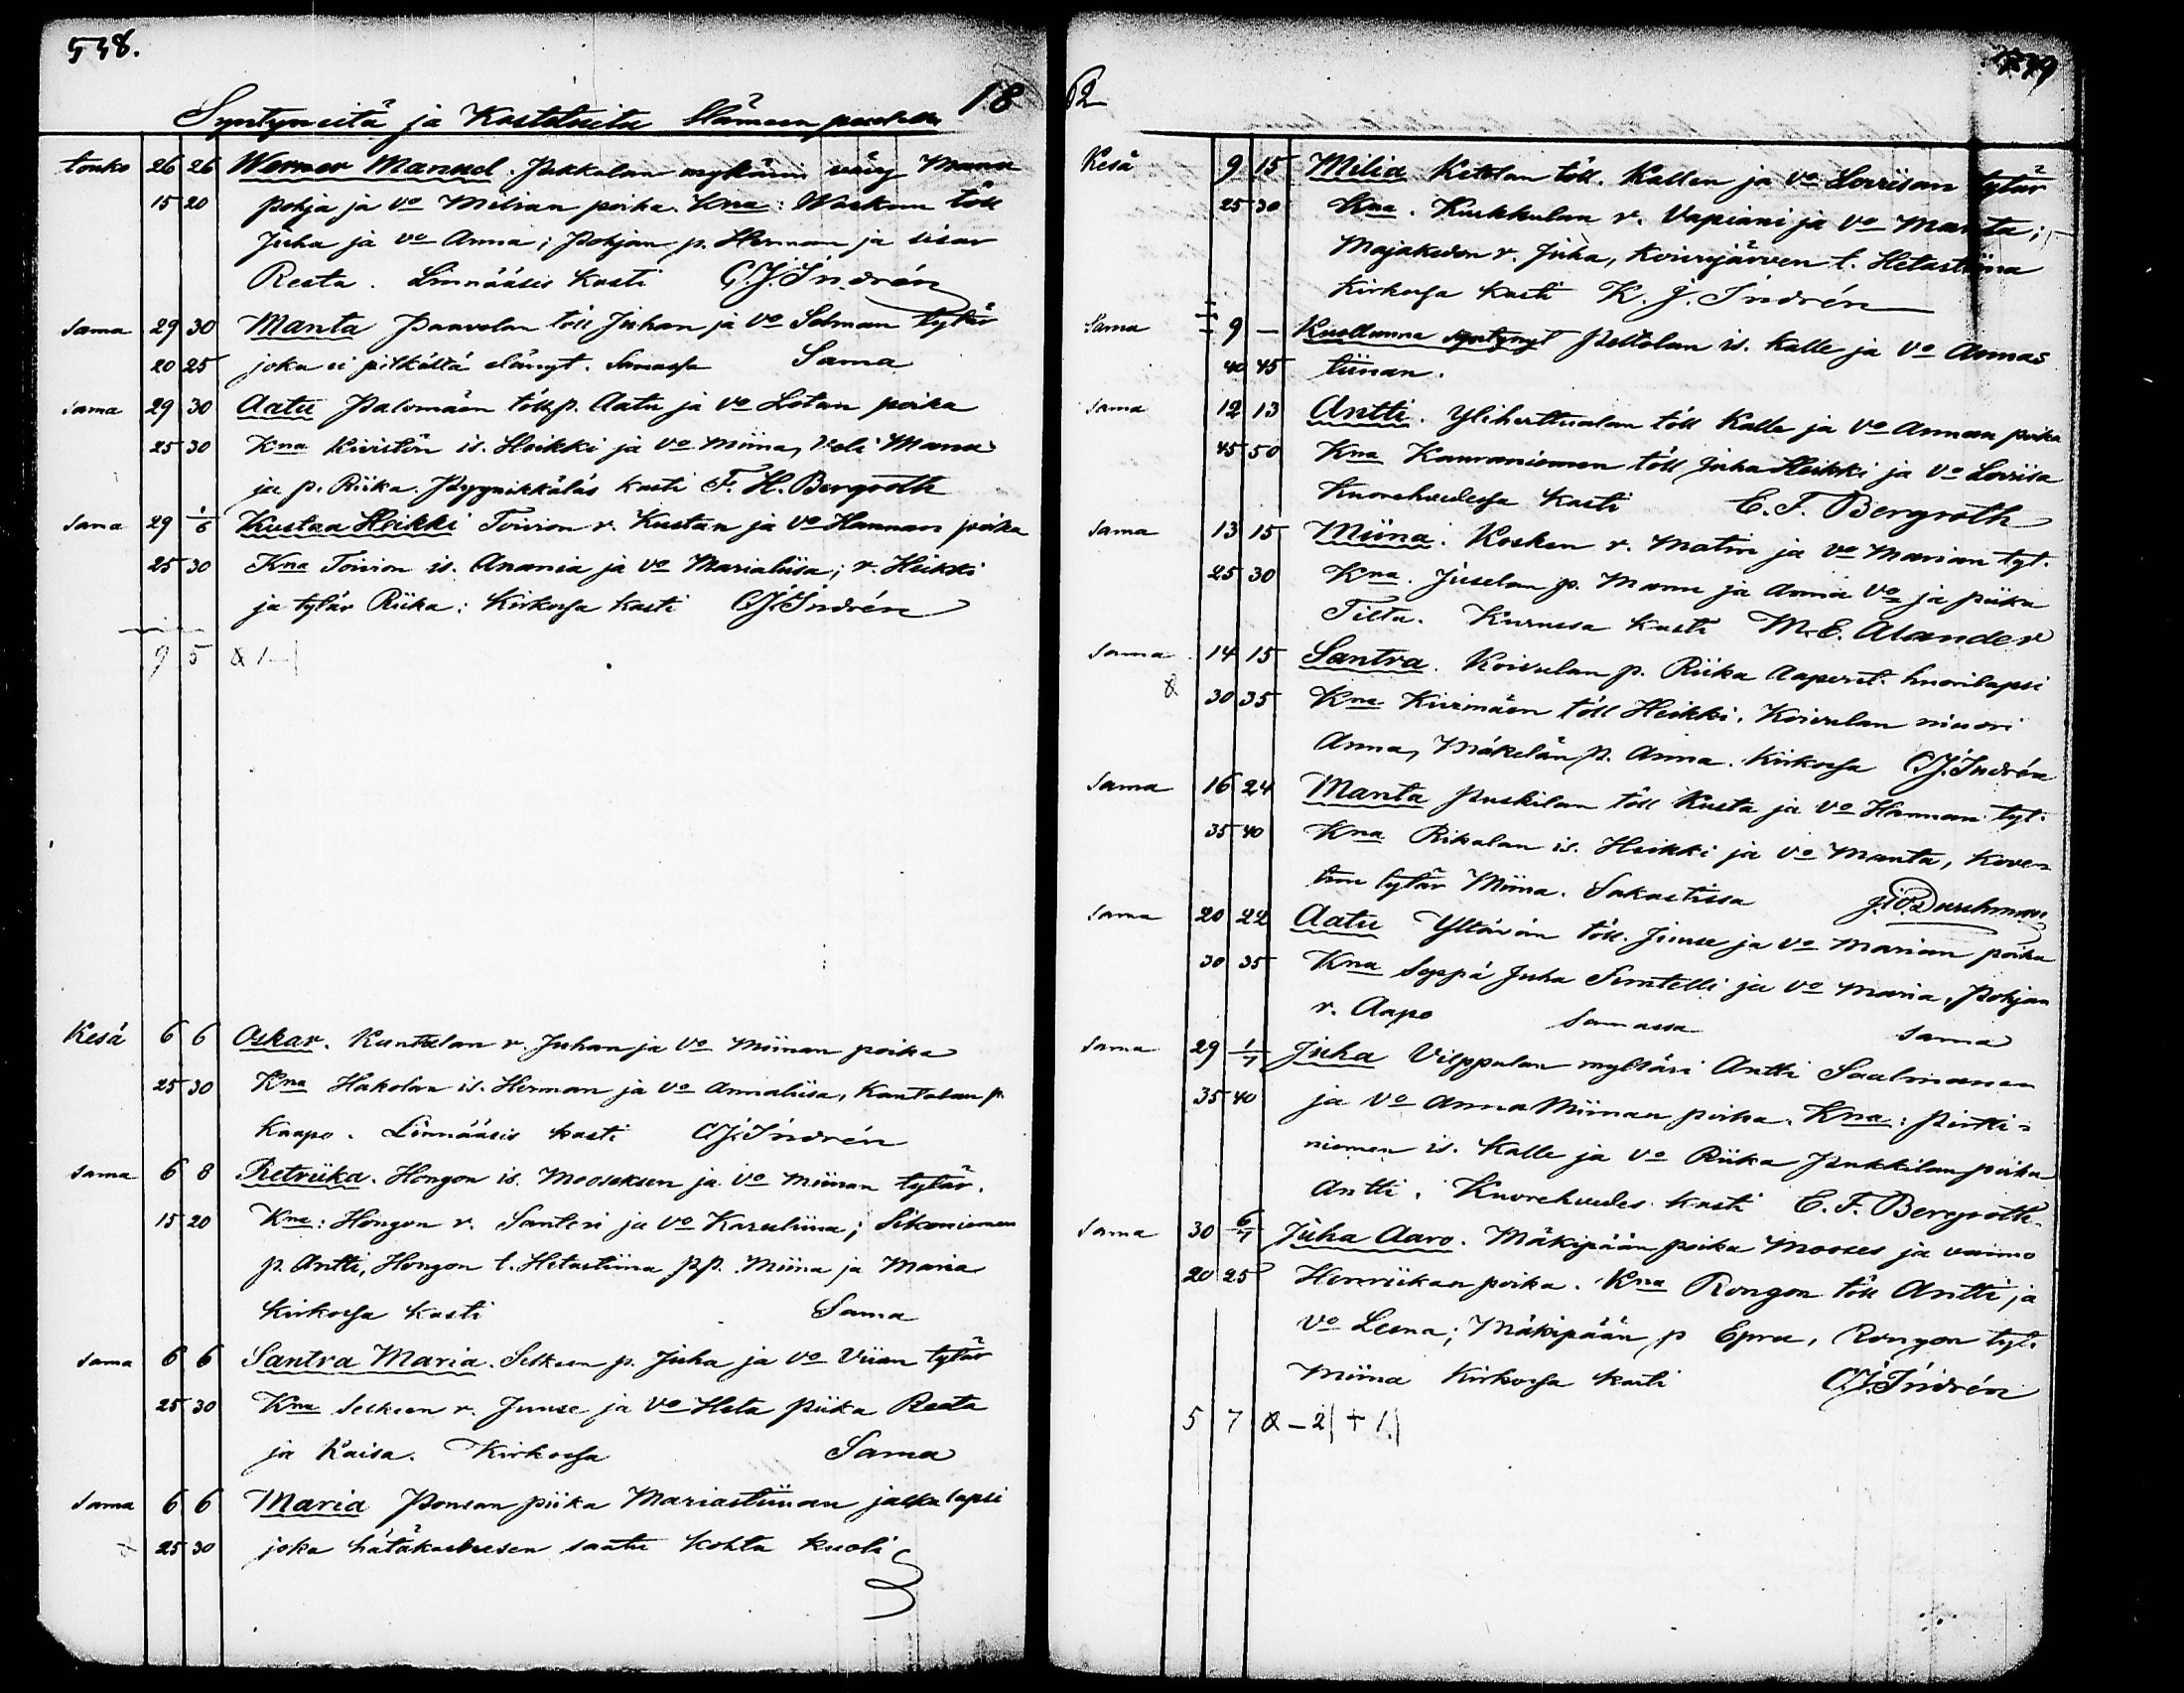 548.
18
Syntyneitä ja Kastetuita Hämeen puolella
touko 26 26 Werner Manuel. Pukkalan mylläri
15 20 pohja ja vo Milian poika. Kna: Waskun töll
Juha ja vo Anna; Pohjan p. Herman ja sisar
Resta. Linnääsis kasti C.J. Indrén
sama 29 30 Manta Paavolan töll Juhan ja vo Selman tytär
20 25 joka ei pitkältä elänyt. Samassa Sama
sama 29 30 Aatu Palomäen töllp. Aatu ja vo Lotan poika
25 30 Kna Kiviistön is. Heikki ja vo Miina, veli Manu
ja p. Riika. Pyynikkäläs kasti F. H. Bergroth
sama 29 1/6 Kustaa Heikki Toivion r. Kustan ja vo Hannan poika
25 30 Kna Toivion is. Anania ja vo Marialiisa; r. Heikki
ja tytär Riika: Kirkossa kasti C.J. Indrén
9 5 & 1—
Kesä 6 6 Oskar. Kantalan r. Juhan ja vo Miinan poika
25 30 Kna Hakolan is. Herman ja vo Annaliisa, Kantalan p.
Kaapo. Linnääsis kasti C.J. Indrén
sama 6 8 Retriika. Hongon is. Mooseksen ja vo Miinan tytär.
15 20 Kna: Hongon r. Santeri ja vo Karuliina; Sikoniemen
p. Antti, Hongon t. Hetastiina pp. Miina ja Maria
Kirkossa kasti Sama
sama 6 6 Santra Maria. Selkeen p. Juha ja vo Viian tytär
25 30 Kna Selkeen r. Juuse ja vo Heta piika Resta
ja Kaisa. Kirkossa Sama
sama 6 6 Maria Ponsan piika Mariastiinan jalka lapsi
25 30 joka hätäkasteesen saatu kohta kuoli
62
549
Kesä 9 15 Milia Ketolan töll. Kallen ja vo Loviisan tytär
25 30 Kna. Kukkulan r. Vapiani ja vo Manta;
Majakedon r. Juha, Koiverjärven t. Hetastiina
Kirkossa kasti K. J. Indrén
Sama 9 — Kuollunna syntynyt Peltolan is. Kalle ja vo Annas
40 45 tiinan.
sama 12 13 Antti. Ylihuttualan töll Kalle ja vo Annan poika
45 50 Kna Kauraniemen töll Juha Heikki ja vo Loviisa
Kuorehvedessa kasti E. F. Bergroth
sama 13 15 Miina. Kosken r. Matin ja vo Marian tyt.
25 30 Kna. Juselan p. Manu ja Anna vo ja piika
Tilta. Kurussa kasti M. E. Alander
sama 14 15 Santra. Koivulan p. Riika Aaperet. huorilapsi
& 30 35 Kna Kivimäen töll Heikki, Koivulan miuori
Anna, Mäkelän p. Anna. Kirkossa C.J. Indrén
Sama 16 24 Manta Puskilan töll Kusta ja vo Hannan tyt.
35 40 Kna Rikalan is. Heikki ja vo Manta, Koven
tun tytär Miina. Sakastissa
sama 20 22 Aatu Yltävän töll. Juuse ja vo Marian poika
30 35 Kna Seppä Juha Simtelli ja vo Maria, Pohjan
r. Aapo Samassa Sama
sama 29 1/7 Juha Vilppulan mylläri Antti Saalmanen
35 40 ja vo Anna Miinan poika. Kna: Pirtti-
niemen is. Kalle ja vo Riika Pukkilan poika
Antti. Kuorehvedes kasti E. F. Bergroth
sama 30 6/7 Juha Aaro. Mäkipään poika Mooses ja vaimo
20 25 Henriikan poika. Kna Rongon töll Antti ja
vo Leena; Mäkipään p Epra, Rongon tyt.
Miina Kirkossa kasti C.J. Indrén
5 7 & — 2 + 1.